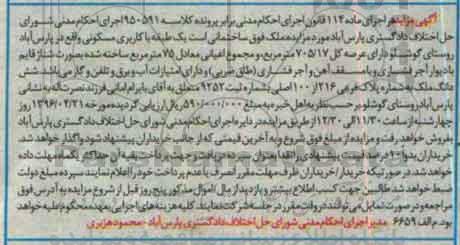 آگهی مزایده در اجرای ماده ۱۱۴ قانون اجرای احکام مدنی برابر پرونده کلاسه ۹۵۰۵۹۱ اجرای احکام مدنی شورای
حل اختلاف دادگستری پارس آباد مورد مزایده ملک فوق ساختمانی است یک طبقه با کاربری مسکونی واقع در پارس آباد
روستای گوشلو دارای عرصه کل ۷۰۵/۱۷ متر مربع، و مجموع اعیانی معادل ۷۵ متر مربع ساخته شده بصورت شناژ قایم
با دیوار آجر فشاری و با سقف آهن و آجر فشاری (طاق ضربی) و دارای امتیازات آب و برق و تلفن و گاز می باشد شش
دانگ ملک به شماره پلاک فرعی ۲۱۶ از ۱۰۰ اصلی بشماره ثبت ۹۲۵۲ متعلق به آقای بایرام امانی فرزند نصرت اله به نشانی
پارس آباد روستای گوشلو بر حسب نظریه اهل خبره به مبلغ ۵۹۰/۰۰۰/۰۰۰ ریال ارزیابی گردیده مورخه ۱۳۹۶/۰۲/۲۱ روز
چهارشنبه از ساعت ۱۱/۳۰ الی ۱۲/۳۰ از طریق مزایده در دایره اجرای احکام مدنی شورای حل اختلاف دادگستری پارس آباد
بفروش خواهد رفت و مزایده از مبلغ فوق شروع و به آخرین قیمتی که از جانب خریداران پیشنهاد شود واگذار خواهد شد.
خریداران بدوا ۱۰ درصد قیمت پیشنهادی را نقدا بعنوان سپرده دریافت و جهت پرداخت بقیه آن حداکثر یکماه مهلت داده
خواهد شد. در صورتیکه خریدار/خریداران ظرف مهلت مقرر انصراف یا عدم پرداخت خود را اعلام نمایند سپرده مبلغ دولت
ضبط خواهد شد طالبین جهت کسب اطلاع بیشتر و بازدید از مال/اموال مذکور پنج روز قبل از شروع مزایده به آدرس فوق
مراجعه و در صورت تمایل می توانند در وقت مقرر در جلسه شرکت نمایند. کلیه هزینه های اجرایی بعهده محکوم علیه خواهد
بود. م الف ۶۶۵۹ مدیر اجرای احکام مدنی شورای حل اختلاف دادگستری پارس آباد - محمود هژبری